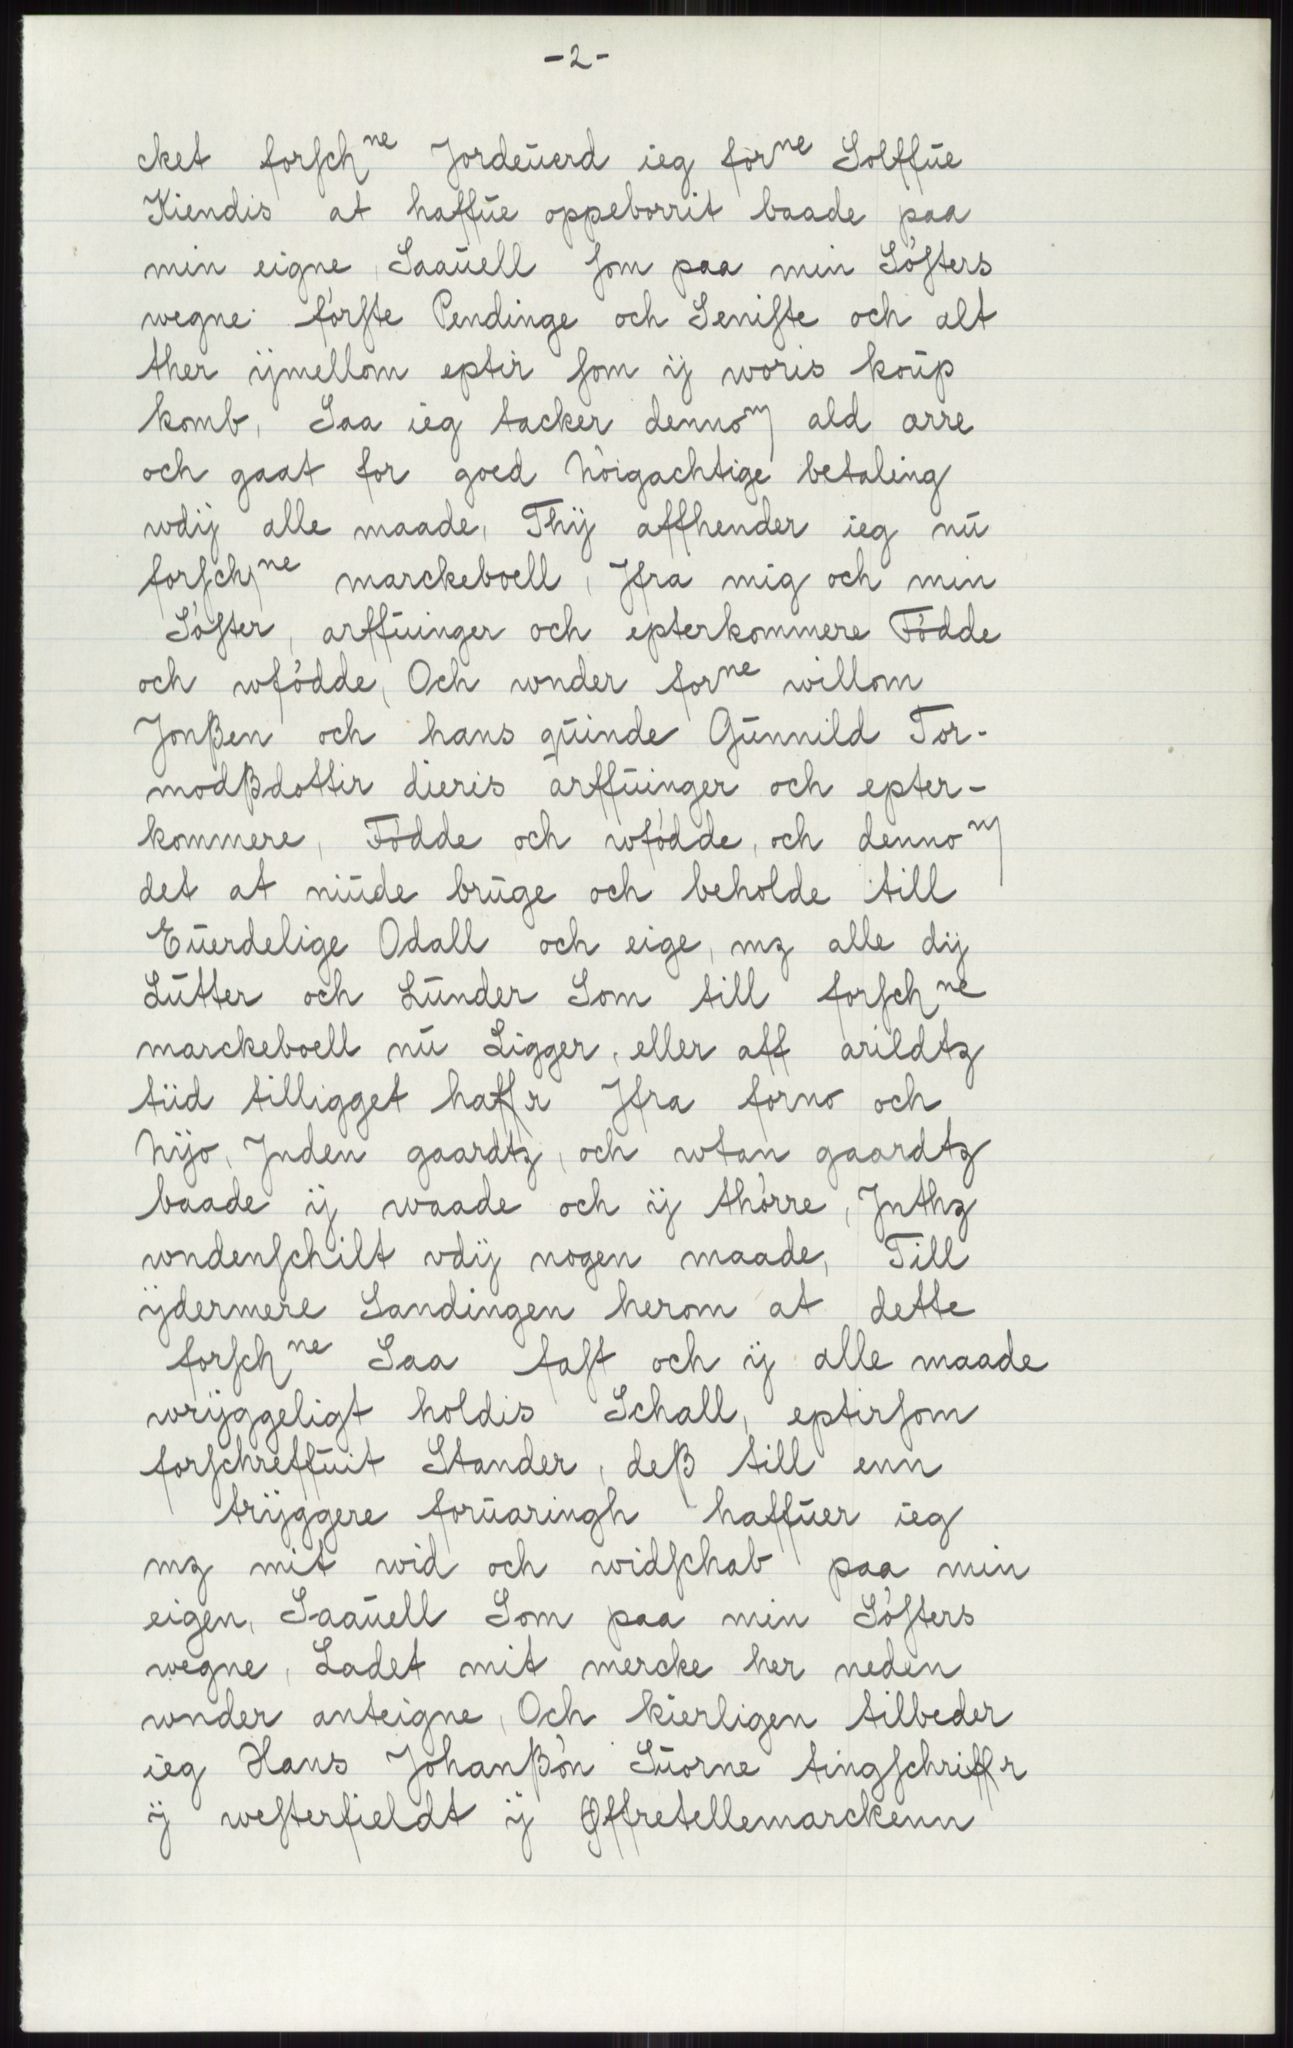 -2-
cket forschne Jordeŭerd ieg forne Solffŭe
Kiendis at haffŭe oppeborrit baade paa
min eigne, Saaŭell som paa min Sósters
wegne fórste Pendinge och Seniste och alt
ther ÿmellom eptir som ÿ woris koŭp
komb, Saa ieg tacker dennom ald ærre
och gaat for goed Nóigachtige betaling
wdÿ alle maade, Thÿ affhender ieg nŭ
forschne marckeboell, Jfra mig och min
Sóster, arffŭinger och epterkommere Fódde
och wfódde, Och wnder forne willom
Jonßen och hans qŭinde Gŭnnild Tor-
modßdottir dieris arffŭinger och epter-
kommere, Fódde och wfódde, och dennom
det at niŭde brŭge och beholde till
Eŭerdelige Odall och eige, mz alle dÿ
Lŭtter och Lŭnder Som till forschne
marckeboell nŭ Ligger, eller aff arildtz
tiid tilligget haffr Jfra forno och
Nÿo, Jnden gaardtz, och wtan gaardtz
baade ÿ waade och ÿ thórre, Jnthz
wndenschilt vdÿ nogen maade, Till
ÿdermere Sandingen herom at dette
forschne Saa fast och ÿ alle maade
wrÿggeligt holdis Schall, eptirsom
forschreffŭit Stander, deß till enn
trÿggere forŭaringh haffŭer ieg
mz mit wid och widschab paa min
eigen, Saaŭell Som paa min Sósters
wegne, Ladet mit mercke her neden
wnder anteigne, Och kierligen tilbeder
ieg Hans Johanßón Sŭorne tingschriffr
ÿ westerfieldt ÿ Øffretellemarckenn